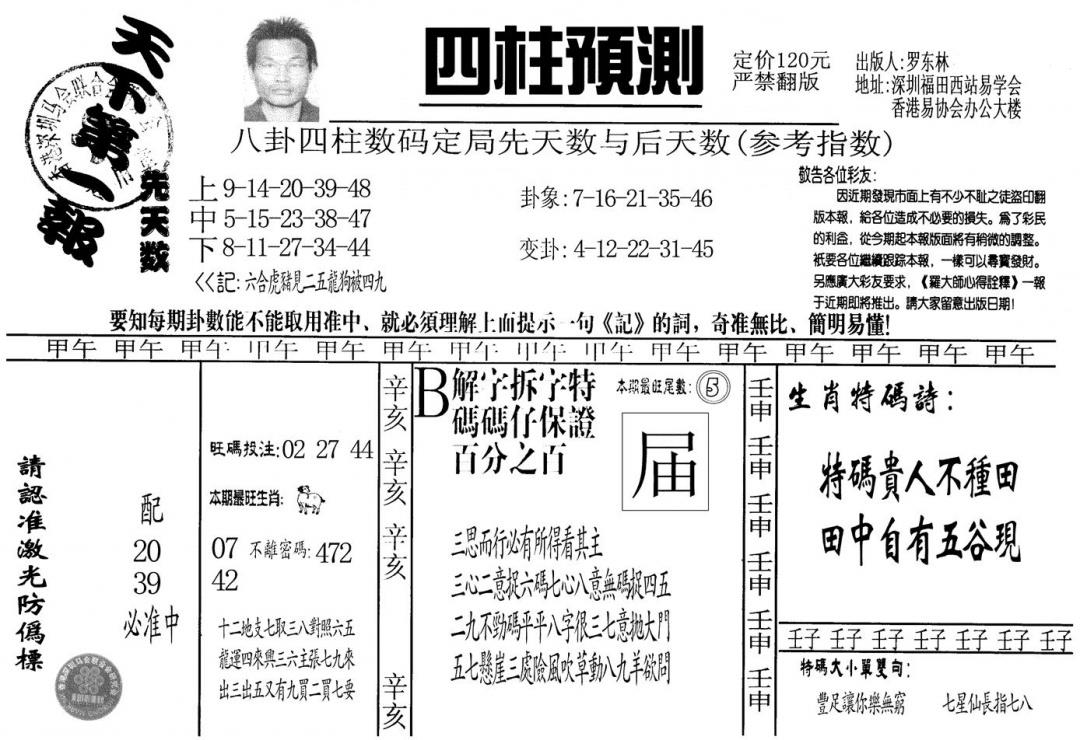 天下第一報
四柱預測
定价120元
严禁翻版
出版人:罗东林
地址:深圳福田西站易学会
香港易协会办公大楼
八卦四柱数码定局先天数与后天数(参考指数)
先天数
上9-14-20-39-48
中5-15-23-38-47
下8-11-27-34-44
<<記:六合虎豬見二五龍狗被四九
卦象:7-16-21-35-46
变卦:4-12-22-31-45
敬告各位彩友:
因近期發現市面上有不少不耻之徒盜印翻
版本報，給各位造成不必要的損失。爲了彩民
的利益，從今期起本報版面將有稍微的調整。
衹要各位繼續跟踪本報，一樣可以尋寶發財。
另應廣大彩友要求，《羅大師心得詮釋》一報
于近期即將推出。請大家留意出版日期!
要知每期卦數能不能取用准中、就必須理解上面提示一句《記》的詞，奇准無比、簡明易懂!
甲午 甲午 甲午 甲午 甲午 甲午 甲午 甲午 甲午 甲午 甲午 甲午 甲午 甲午 甲午
請認准激光防僞標
配
20
39
必准中
旺碼投注:02 27 44
本期最旺生肖:
07 不離密碼:472
42
十二地支七取三八對照六五
龍運四來興三六主張七九來
出三出五又有九買二買七要
辛亥 辛亥 辛亥 辛亥
B解字拆字特
碼碼仔保證
百分之百
本期最旺尾數:5
届
三思而行必有所得看其主
三心二意捉六碼七心八意無碼捉四五
二九不勁碼平平八字很三七意抛大門
五七懸崖三處險風吹草動八九羊欲問
壬申 壬申 壬申 壬申 壬申 壬申
生肖特碼詩:
特碼貴人不種田
田中自有五谷現
壬子 壬子 壬子 壬子 壬子 壬子 壬子
特碼大小單雙句:
豐足讓你樂無窮 七星仙長指七八